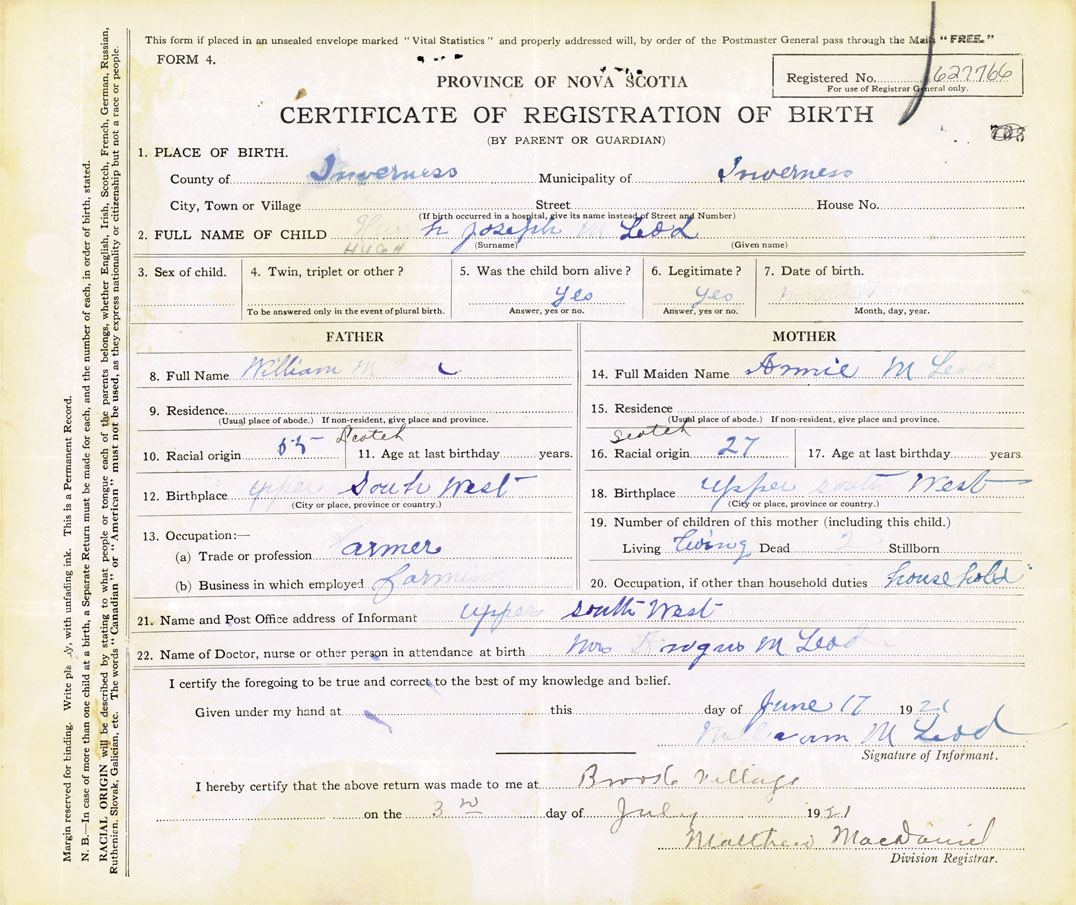 This form if placed in an unsealed envelope marked "Vital Statistics" and properly addressed will, by order of the Postmaster General pass through the Mail "FREE."
FORM 4.
PROVINCE OF NOVA SCOTIA
Registered No. 627766
For use of Registrar General only.
CERTIFICATE OF REGISTRATION OF BIRTH
(BY PARENT OR GUARDIAN)
1. PLACE OF BIRTH.
County of Inverness Municipality of Inverness
City, Town or Village Street House No.
(If birth occurred in a hospital, give its name instead of Street and Number)
2. FULL NAME OF CHILD h Joseph M Leod
HUGH (Surname) (Given name)
3. Sex of child. 4. Twin, triplet or other? 5. Was the child born alive? 6. Legitimate? 7. Date of birth.
yes yes
To be answered only in the event of plural birth. Answer, yes or no. Answer, yes or no. Month, day, year.
FATHER
8. Full Name William M Leod
9. Residence
(Usual place of abode.) If non-resident, give place and province.
Scotch
10. Racial origin 11. Age at last birthday years.
12. Birthplace upper South West
(City or place, province or country.)
13. Occupation:—
(a) Trade or profession Farmer
(b) Business in which employed farming
MOTHER
14. Full Maiden Name Annie M Leod
15. Residence
(Usual place of abode.) If non-resident, give place and province.
Scotch
16. Racial origin 27 17. Age at last birthday years
18. Birthplace upper south West
(City or place, province or country.)
19. Number of children of this mother (including this child.)
Living living Dead Stillborn
20. Occupation, if other than household duties household
21. Name and Post Office address of Informant upper south West
22. Name of Doctor, nurse or other person in attendance at birth Mrs Angus M Leod
I certify the foregoing to be true and correct to the best of my knowledge and belief.
Given under my hand at this day of June 17 1921
William M Leod
Signature of Informant.
I hereby certify that the above return was made to me at Brook Village
on the 3rd day of July 1921
Matthew MacDaniel
Division Registrar.
Margin reserved for binding. Write plainly, with unfading ink. This is a Permanent Record.
N. B.—In case of more than one child at a birth, a Separate Return must be made for each, and the number of each, in order of birth, stated.
RACIAL ORIGIN will be described by stating to what people or tongue each of the parents belongs, whether English, Irish, Scotch, French, German, Russian,
Ruthenien, Slovak, Galician, etc. The words "Canadian" or "American" must not be used, as they express nationality or citizenship but not a race or people.